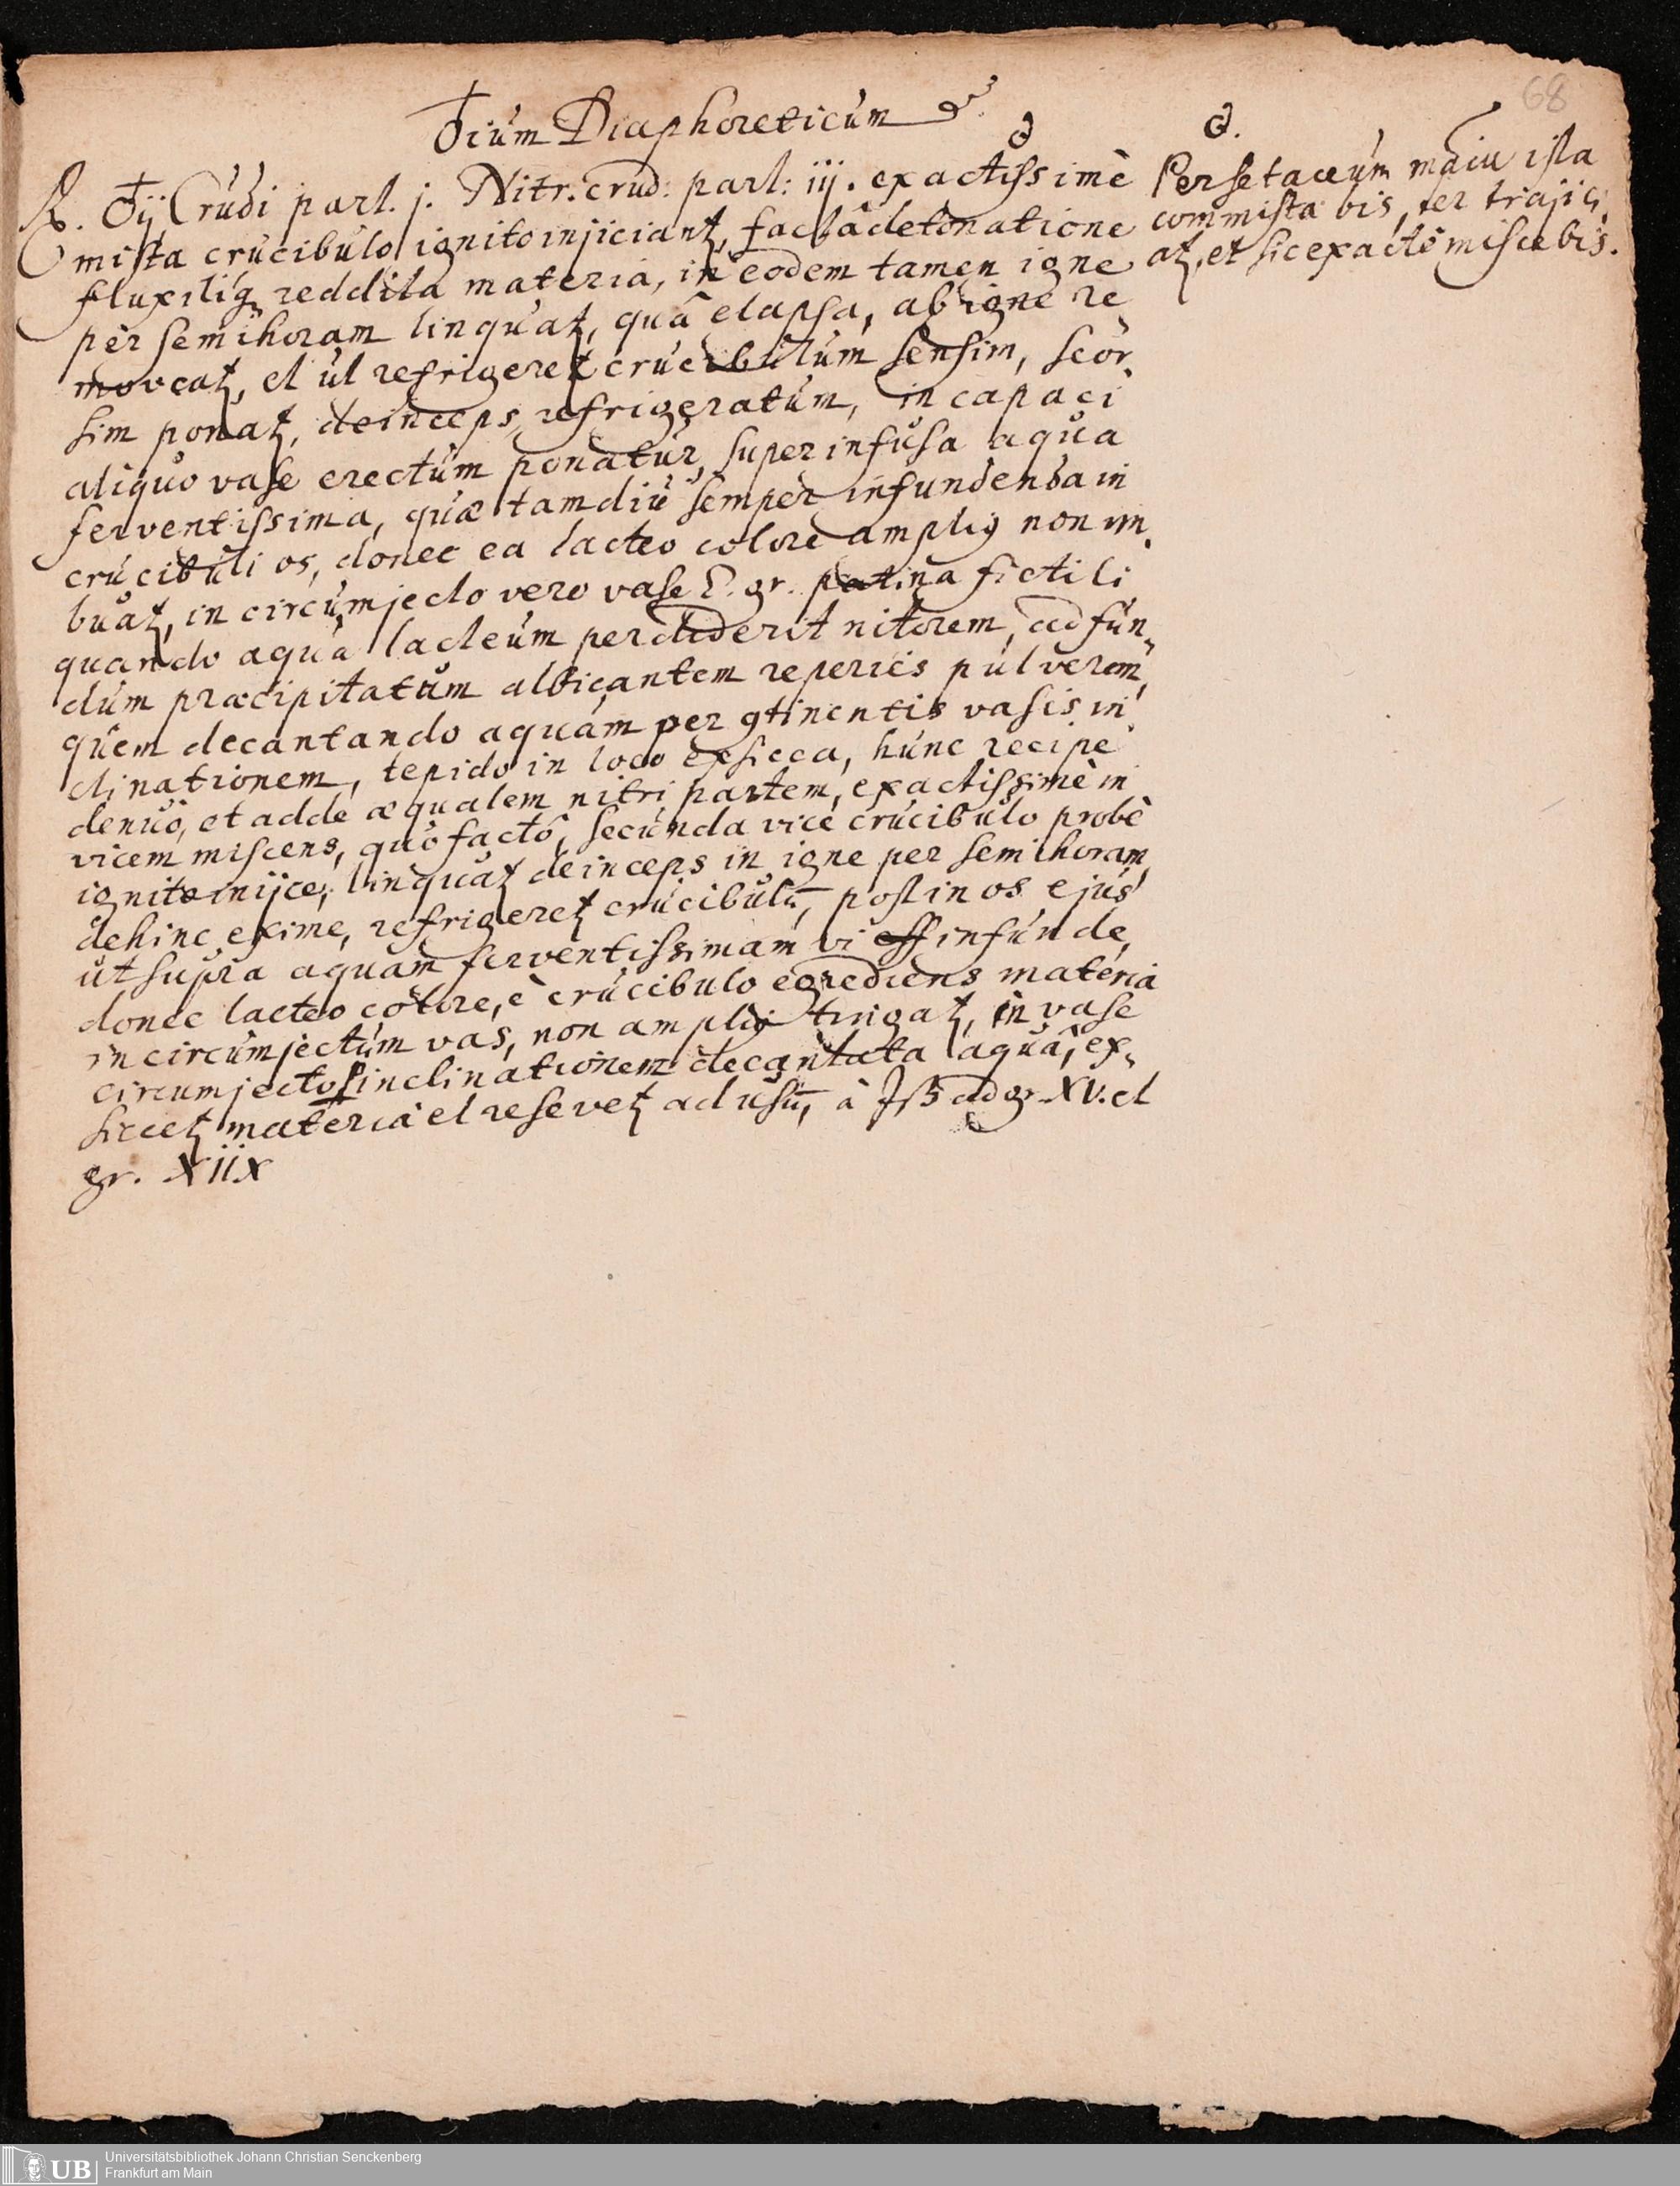 68
♁ium Diaphoreticum
℞. ♁ij Crudi part. j. Nitr. crud: part: iij. exactissimè
mista crucibulo ignito injiciantʒ, factâ detonatione
fluxiliqʒ reddita materia, in eodem tamen igne
per semihoram linquatʒ, quâ elapsa, ab igne re
moveatʒ, et ut refrigeretʒ crucibulum sensim, seor
sim ponatʒ, deinceps refrigeratum, in capaci
aliquo vase erectum ponatur, superinfusa aqua
ferventissima, quæ tamdiu semper infundenda in
crucibuli os, donec ea lacteo colore ampliꝰ non im
buatʒ, in circumjecto vero vase E. gr. patina fictili
quando aqua lacteum perdiderit nitorem, ad fun„
dum præcipitatum albicantem reperies pulverem,
quem decantando aquam per ꝯtinentis vasis in
clinationem, tepido in loco exsicca, hunc recipe
denuò, et adde æqualem nitri partem, exactissimè in
vicem miscens, quô factô, secunda vice crucibulo probè
ignito inijce, linquatʒ deinceps in igne per semihoram,
dehinc exime, refrigeretʒ crucibulū, post in os ejus
ut supra aquam ferventissimam vi infunde,
donec lacteo colore, è crucibulo egrediens materia
in circumjectum vas, non ampliꝰ tingatʒ, in vase
circumjecto inclinationem decantata aquâ, ex„
siccetʒ materia et resevetʒ ad usū, à ℈ß ad gr. XV. et
gr. XIIX
∂.
Per setaceum majus ista
commista bis, ter trajici
atʒ, et sic exactè miscebis.
UB
Universitätsbibliothek Johann Christian Senckenberg
Frankfurt am Main